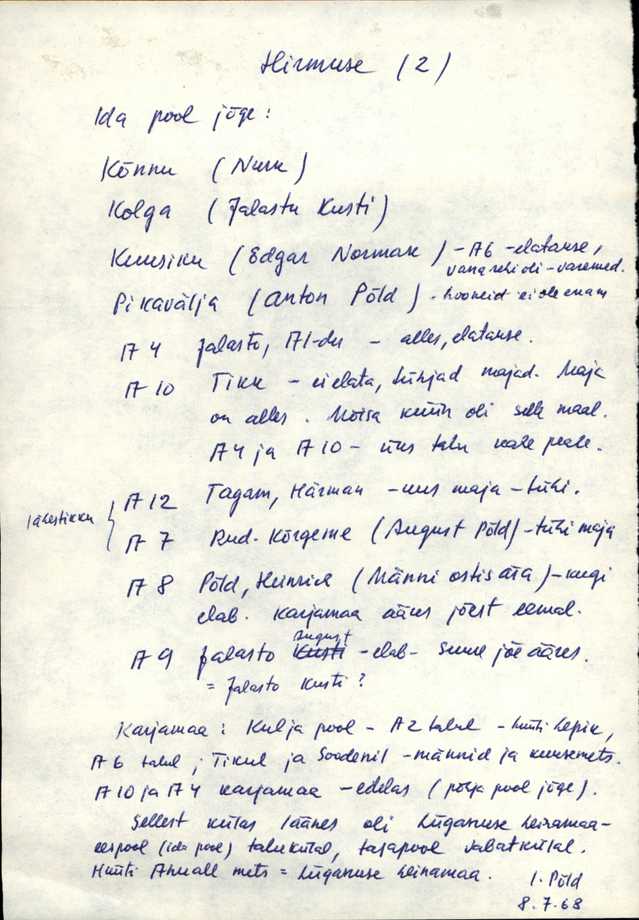 Hirmuse (2)
Ida pool jõge:
Kõnnu (Nuru)
Kolga (Jalastu Kusti)
Kuusiku (Edgar Normase) - A6 - elatakse,
vana rehi oli - varemed.
Pikavälja (Anton Põld) - hooneid ei ole enam
A 4 Jalasto, A1-du - alles, elatakse.
A 10 Tikk - ei elata, tühjad majad. Maja
on alles. Mõisa küün oli selle maal.
A4 ja A10 - üks talu kahe peale.
A 12 Tagam, Härman - uus maja - tühi.
lähestikku
A 7 Rud. Kõrgeme (August Põld) - tühi maja
A 8 Põld, Heinrich (Männi ostis ära) - keegi
elab. Karjamaa ääres jõest eemal.
A 9 Jalasto Kusti August - elab - Suure jõe ääres.
= Jalasto Kusti?
Karjamaa: Kulja pool - A2 talul - hüüti Lepik,
A6 talul; Tikul ja Soodenil - männid ja kuusemets.
A10 ja A4 karjamaa - edelas (põhja pool jõge).
Sellest külas läänes oli Lüganuse heinamaa -
eespool (ida pool) talukülal, tagapool vabatkülal.
Hüüti Ahuall mets = Lüganuse heinamaa.
I. Põld
8.7.68